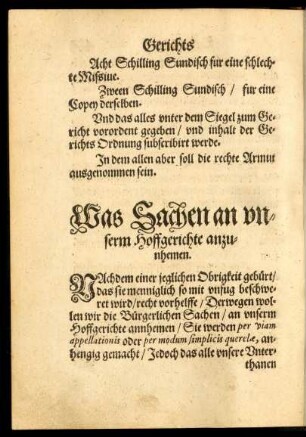 Gerichts
Acht Schilling Sundisch fur eine schlech-
te Missiue.
Zween Schilling Sundisch / fur eine
Copey derselben.
Vnd das alles vnter dem Siegel zum Ge-
richt vorordent gegeben / vnd inhalt der Ge-
richts Ordnung subscribirt werde.
In dem allen aber soll die rechte Armut
ausgenommen sein.
Was Sachen an vn-
serm Hoffgerichte anzu-
nhemen.
NAchdem einer jeglichen Obrigkeit gebürt /
das sie menniglich so mit vnfug beschwe-
ret wird / recht vorhelffe / Derwegen wol-
len wir die Bürgerlichen Sachen / an vnserm
Hoffgerichte annhemen / Sie werden per viam
appellationis oder per modum simplicis querelæ, an-
hengig gemacht / Jedoch das alle vnsere Vnter-
thanen